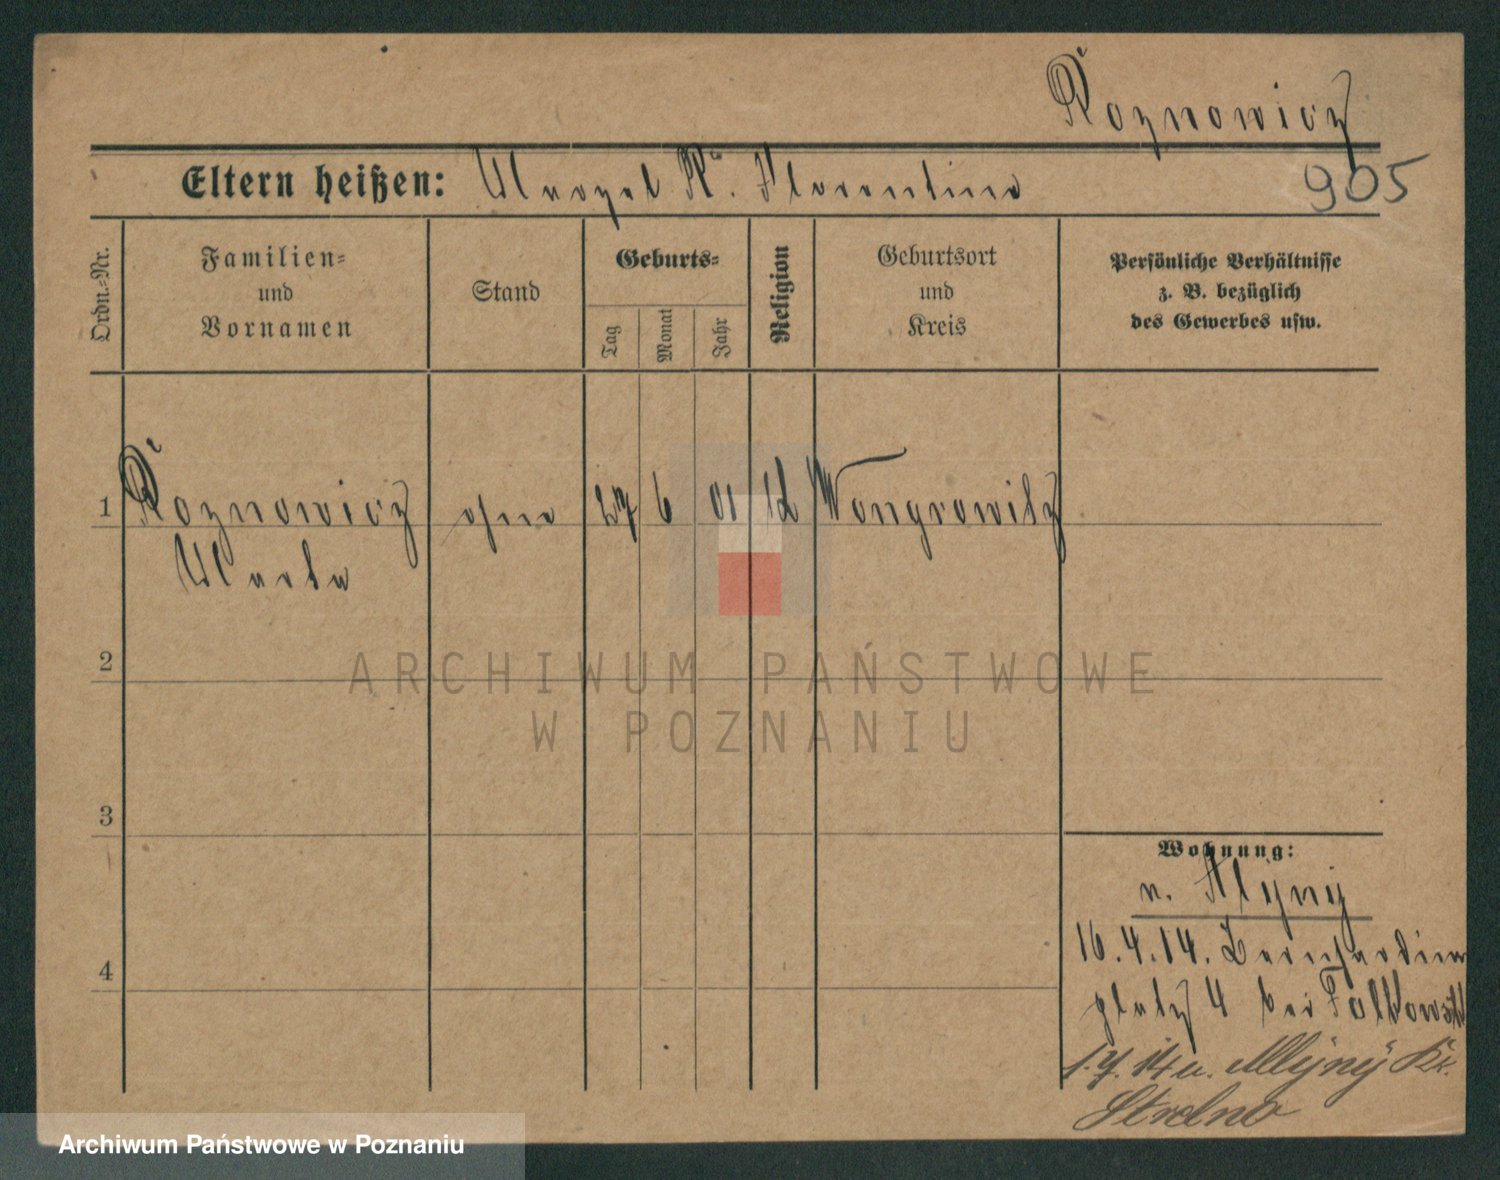 Roznowicz
905
Eltern heißen: R. Florentine
Ordn.-Nr.
Familien-
und
Vornamen
Stand
Geburts-
Tag
Monat
Jahr
Religion
Geburtsort
und
Kreis
Persönliche Verhältnisse
z. B. bezüglich
des Gewerbes usw.
1 Roznowicz ohne 27 6 01 Wongrowitz
Marta
2
3
4
Wohnung:
v. Mlyny
16.4.14. Bernhardiner
platz 4 bei
1.7.14 n. Mlyny Kr.
Strelno
ARCHIWUM PAŃSTWOWE
W POZNANIU
Archiwum Państwowe w Poznaniu